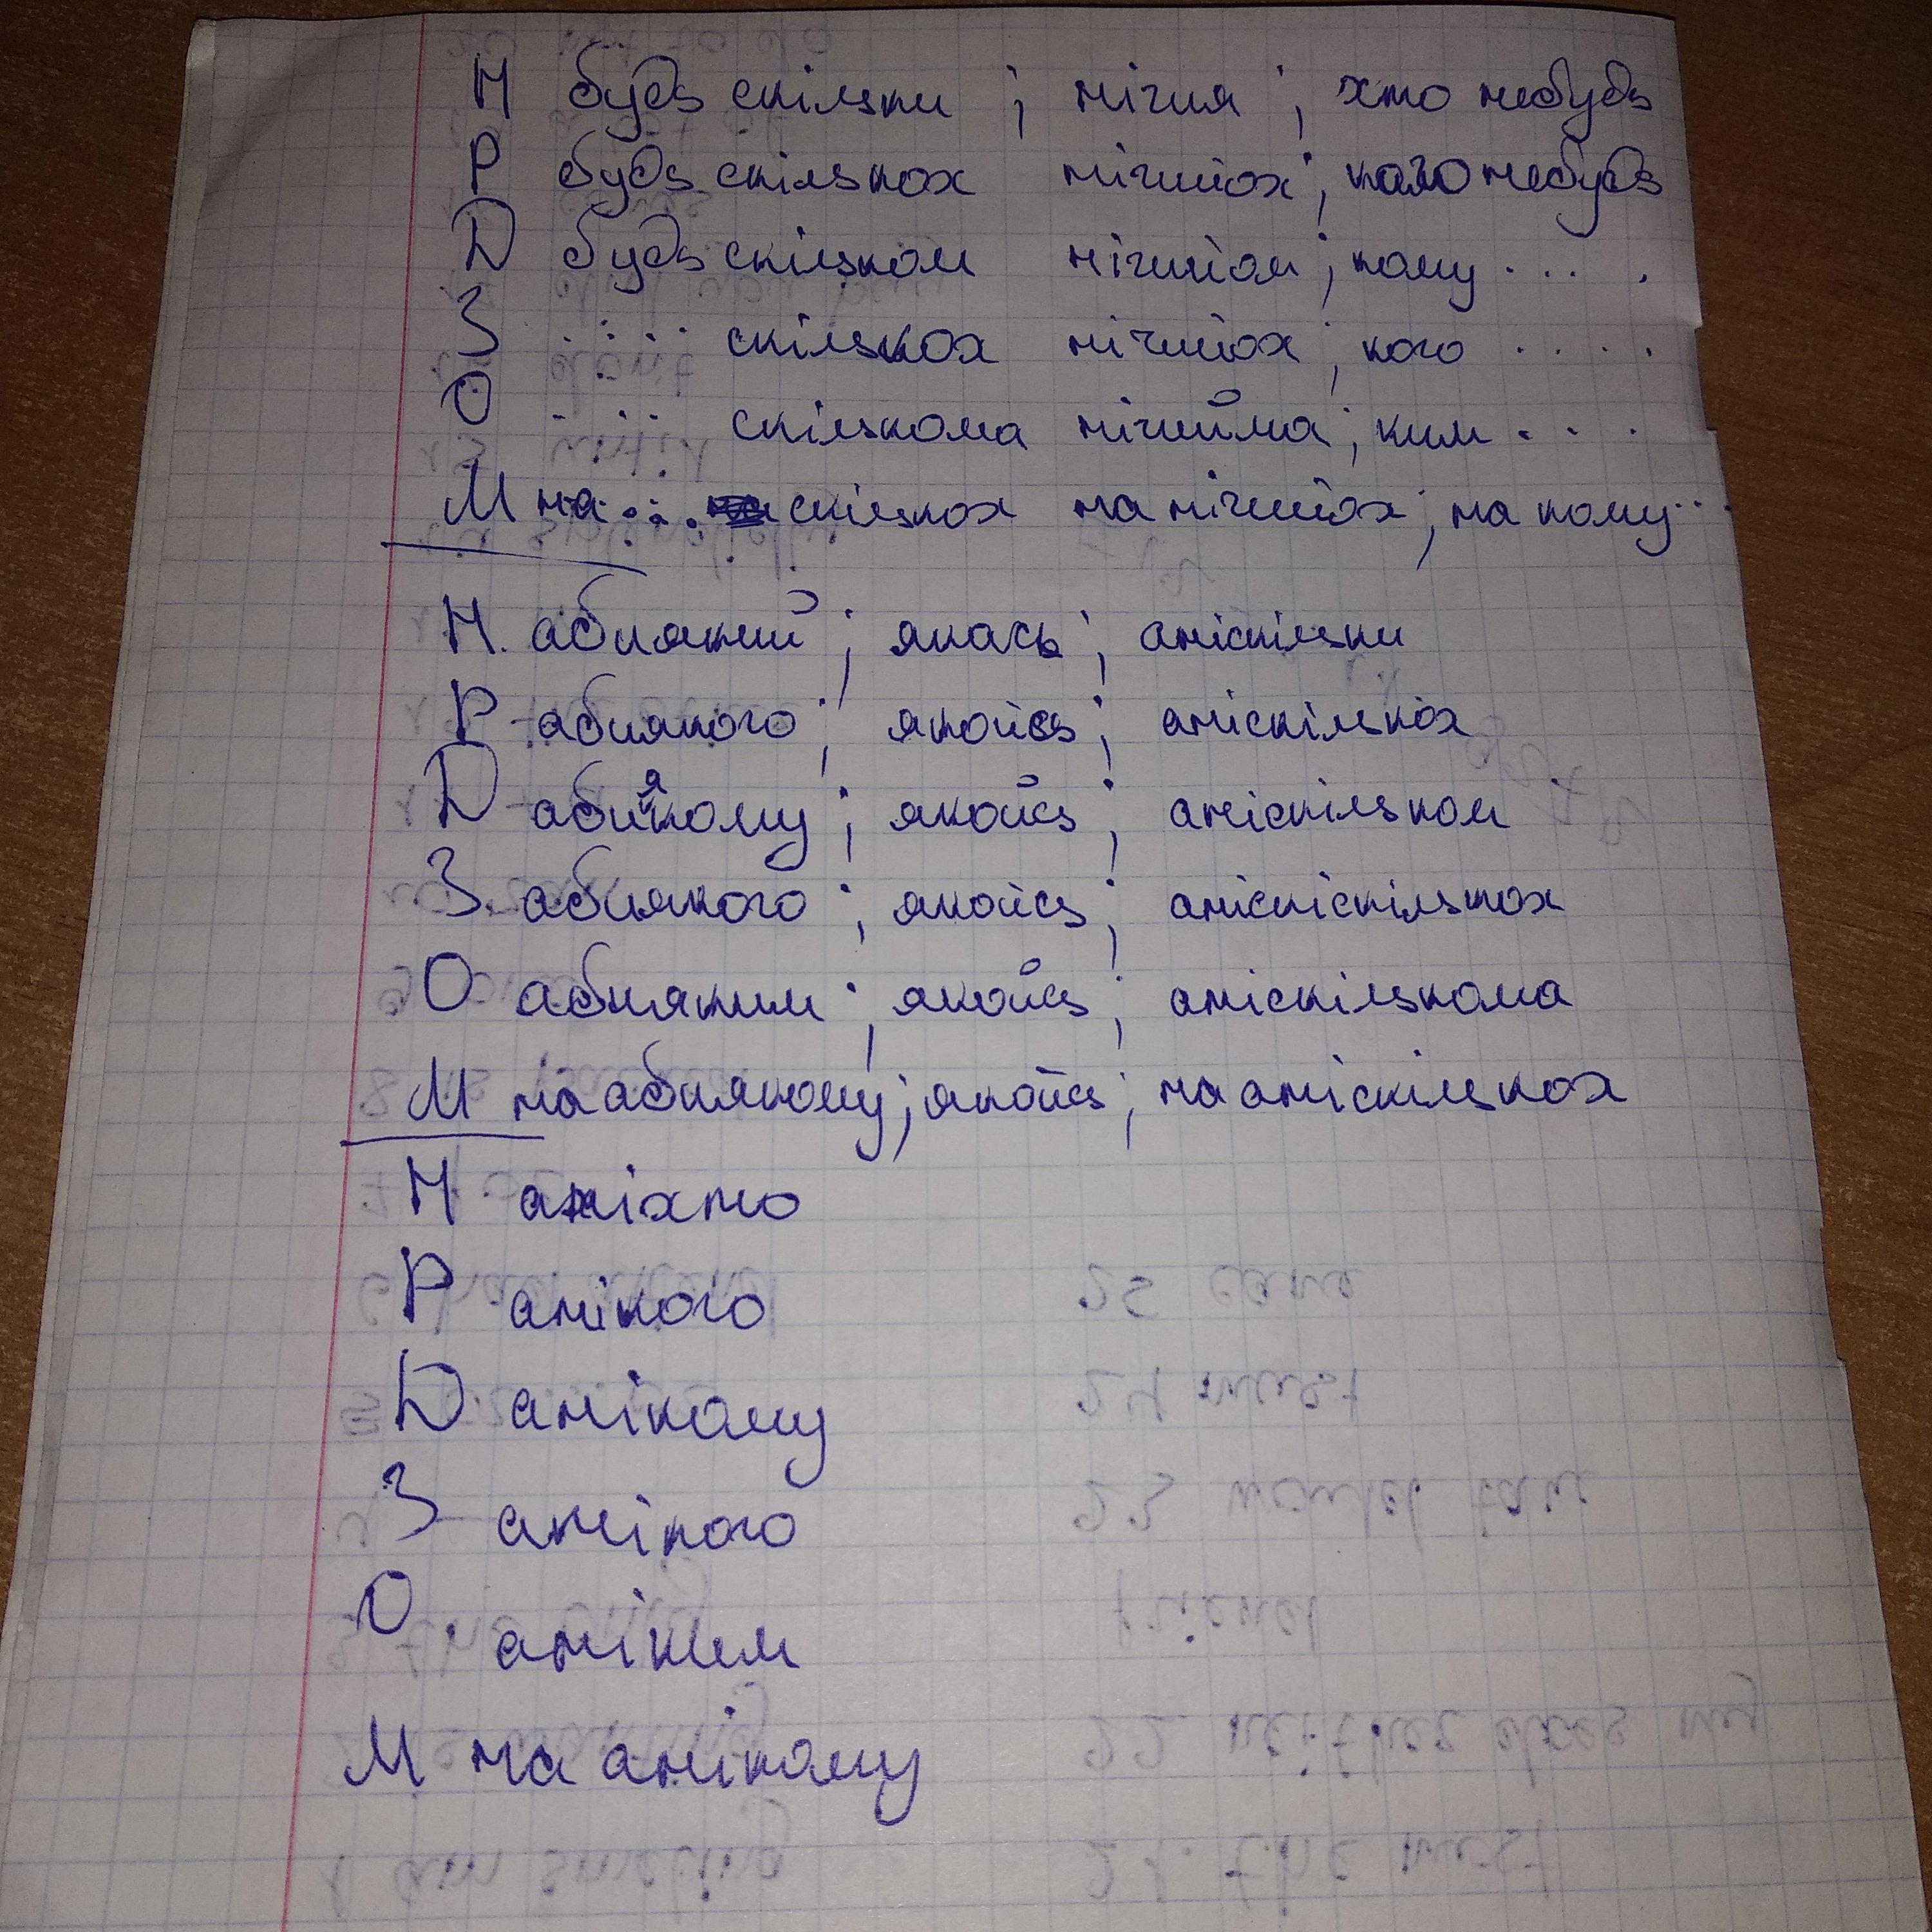 Н будь скільки ; нічия ; хто небудь
Р будь скількох нічийох ; кого небудь
Д будь скільком нічийом ; кому . . . .
З . . . . скількох нічийох ; кого . . . .
О . . . . скількома нічийма ; ким . . .
М на . . . скількох на нічийох ; на кому . .
Н. абиякий ; якась ; аніскільки
Р абиякого ; якоїсь ; аніскількох
Д абиякому ; якойсь ; аніскільком
З абиякого ; якоїсь ; аніскіскількох
О абияким ; якойсь ; аніскількома
М на абиякому ; якойсь ; на аніскількох
Н аніхто
Р анікого
Д анікому
З анікого
О аніким
М на анікому